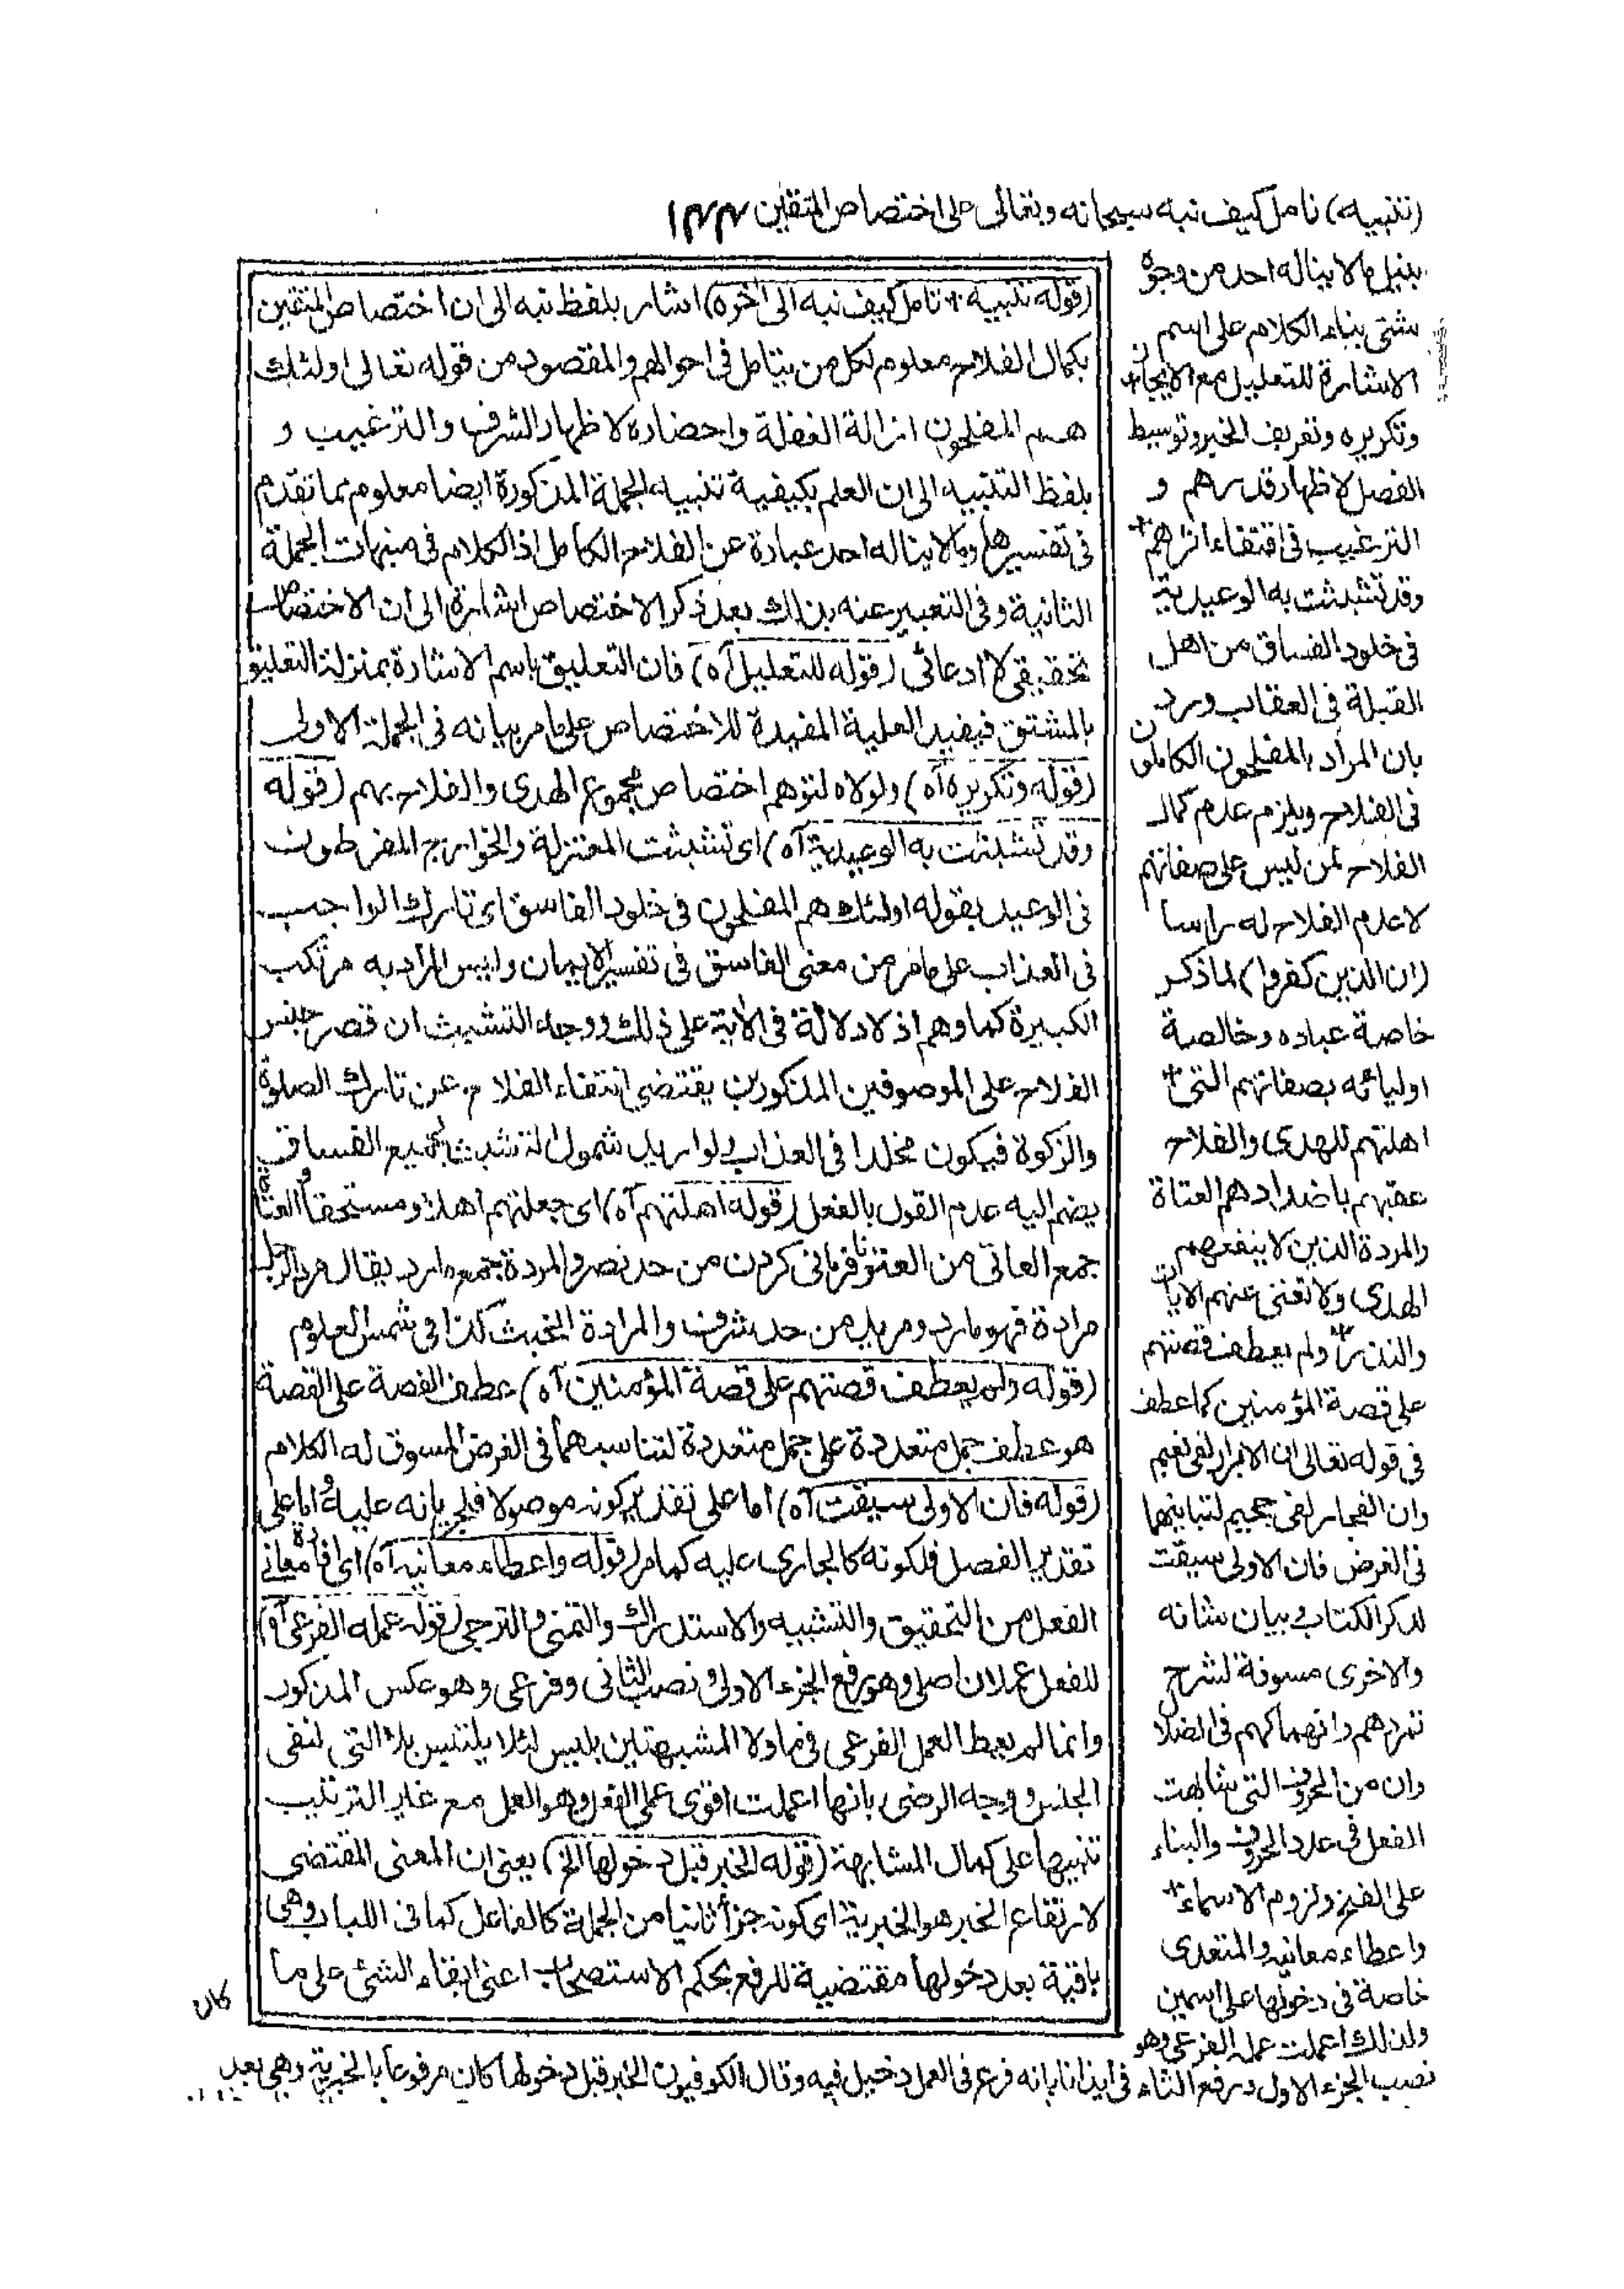 (تنبيه) تامل كيف نبه سبحانه وتعالى على اختصاص المتقين ١٤٤
بنيل مالا يناله احد من وجوه
شتى بناء الكلام على اسم
الاشارة للتعليل مع الايجاز
وتكريره وتعريف الخبر وتوسيط
الفصل لاظهار قدرهم و
الترغيب فى اقتفاء اثرهم
وقد تشبثت به الوعيدية
فى خلود الفساق من اهل
القبلة فى العقاب ورد
بان المراد بالمفلحون الكاملون
فى الفلاح ويلزم عدم كمال
الفلاح لمن ليس على صفاتهم
لا عدم الفلاح له راسا
(ان الذين كفروا) لما ذكر
خاصة عباده وخالصة
اوليائه بصفاتهم التى
اهلتهم للهدى والفلاح
عقبهم باضدادهم العتاة
والمردة الذين لا ينفعهم
الهدى ولا تغنى عنهم الايات
والنذر ولم يعطف قصتهم
على قصة المؤمنين كما عطف
فى قوله تعالى ان الابرار لفى نعيم
وان الفجار لفى جحيم لتباينهما
فى الغرض فان الاولى سيقت
لذكر الكتاب وبيان شانه
والاخرى مسوقة لشرح
تمردهم وانهماكهم فى الضلال
وان من الحروف التى شابهت
الفعل فى عدد الحروف والبناء
على الفتح ولزوم الاسماء
واعطاء معانيه والمتعدى
خاصة فى دخولها على اسمين
ولذلك اعملت عمله الفرعى وهو
نصب الجزء الاول ورفع الثانى ايذانا بانه فرع فى العمل دخيل فيه وقال الكوفيون الخبر قبل دخولها كان مرفوعا بالخبرية وهى بعد
(قوله تنبيه تامل كيف نبه الى اخره) اشار بلفظ نبه الى ان اختصاص المتقين
بكمال الفلاح معلوم لكل من يتامل فى احوالهم والمقصود من قوله تعالى اولئك
هم المفلحون ازالة الغفلة واحضاره لاظهار الشرف والترغيب و
بلفظ التنبيه الى ان العلم بكيفية تنبيه الجملة المذكورة ايضا معلوم بما تقدم
فى تفسيرها ومالا يناله احد عبارة عن الفلاح الكامل اذ الكلام فى منبهات الجملة
الثانية وفى التعبير عنه بذلك بعد ذكر الاختصاص اشارة الى ان الاختصاص
تحقيقى لا ادعائى (قوله للتعليل آه) فان التعليق باسم الاشارة بمنزلة التعليق
بالمشتق فيفيد العلية المفيدة للاختصاص على ما مر بيانه فى الجملة الاولى
(قوله وتكريره آه) ولولاه لتوهم اختصاص مجموع الهدى والفلاح بهم (قوله
وقد تشبثت به الوعيدية آه) اى تشبثت المعتزلة والخوارج المفرطون
فى الوعيد بقوله اولئك هم المفلحون فى خلود الفاسق اى تارك الواجب
فى العذاب على ما مر من معنى الفاسق فى تفسير الايمان وليس المراد به مرتكب
الكبيرة كما وهم اذ لا دلالة فى الآية على ذلك ووجه التشبث ان قصر جنس
الفلاح على الموصوفين المذكورين يقتضى انتفاء الفلاح عن تارك الصلوة
والزكوة فيكون مخلدا فى العذاب ولو اريد شمول التشبث لجميع الفساق
يضم اليه عدم القول بالفصل (قوله اهلتهم آه) اى جعلتهم اهلا ومستحقا والعتاة
جمع العاتى من العتو نافرمانى كردن من حد نصر والمردة جمع مارد يقال مرد الرجل
مرادة فهو مارد ومريد من حد شرف والمرادة الخبث كذا فى شمس العلوم
(قوله ولم يعطف قصتهم على قصة المؤمنين آه) عطف القصة على القصة
هو عطف جمل متعددة على جمل متعددة لتناسبهما فى الغرض المسوق له الكلام
(قوله فان الاولى سيقت آه) اما على تقدير كونه موصولا فلجريانه عليه واما على
تقدير الفصل فلكونه كالجارى عليه كما مر (قوله واعطاء معانيه آه) اى افادة معانى
الفعل من التحقيق والتشبيه والاستدراك والتمنى والترجى (قوله عمله الفرعى آه)
للفعل عملان اصلى وهو رفع الجزء الاول ونصب الثانى وفرعى وهو عكس المذكور
وانما لم يعط العمل الفرعى فى ما ولا المشبهتين بليس لئلا يلتبس بلا التى لنفى
الجنس ووجه الرضى بانها اعملت اقوى عملى الفعل وهو العمل مع غير الترتيب
تنبيها على كمال المشابهة (قوله الخبر قبل دخولها الخ) يعنى ان المعنى المقتضى
لارتفاع الخبر هو الخبرية اى كونه جزأ ثانيا من الجملة كالفاعل كما فى اللباب وهى
باقية بعد دخولها مقتضية للرفع بحكم الاستصحاب اعنى ابقاء الشئ على ما
كان